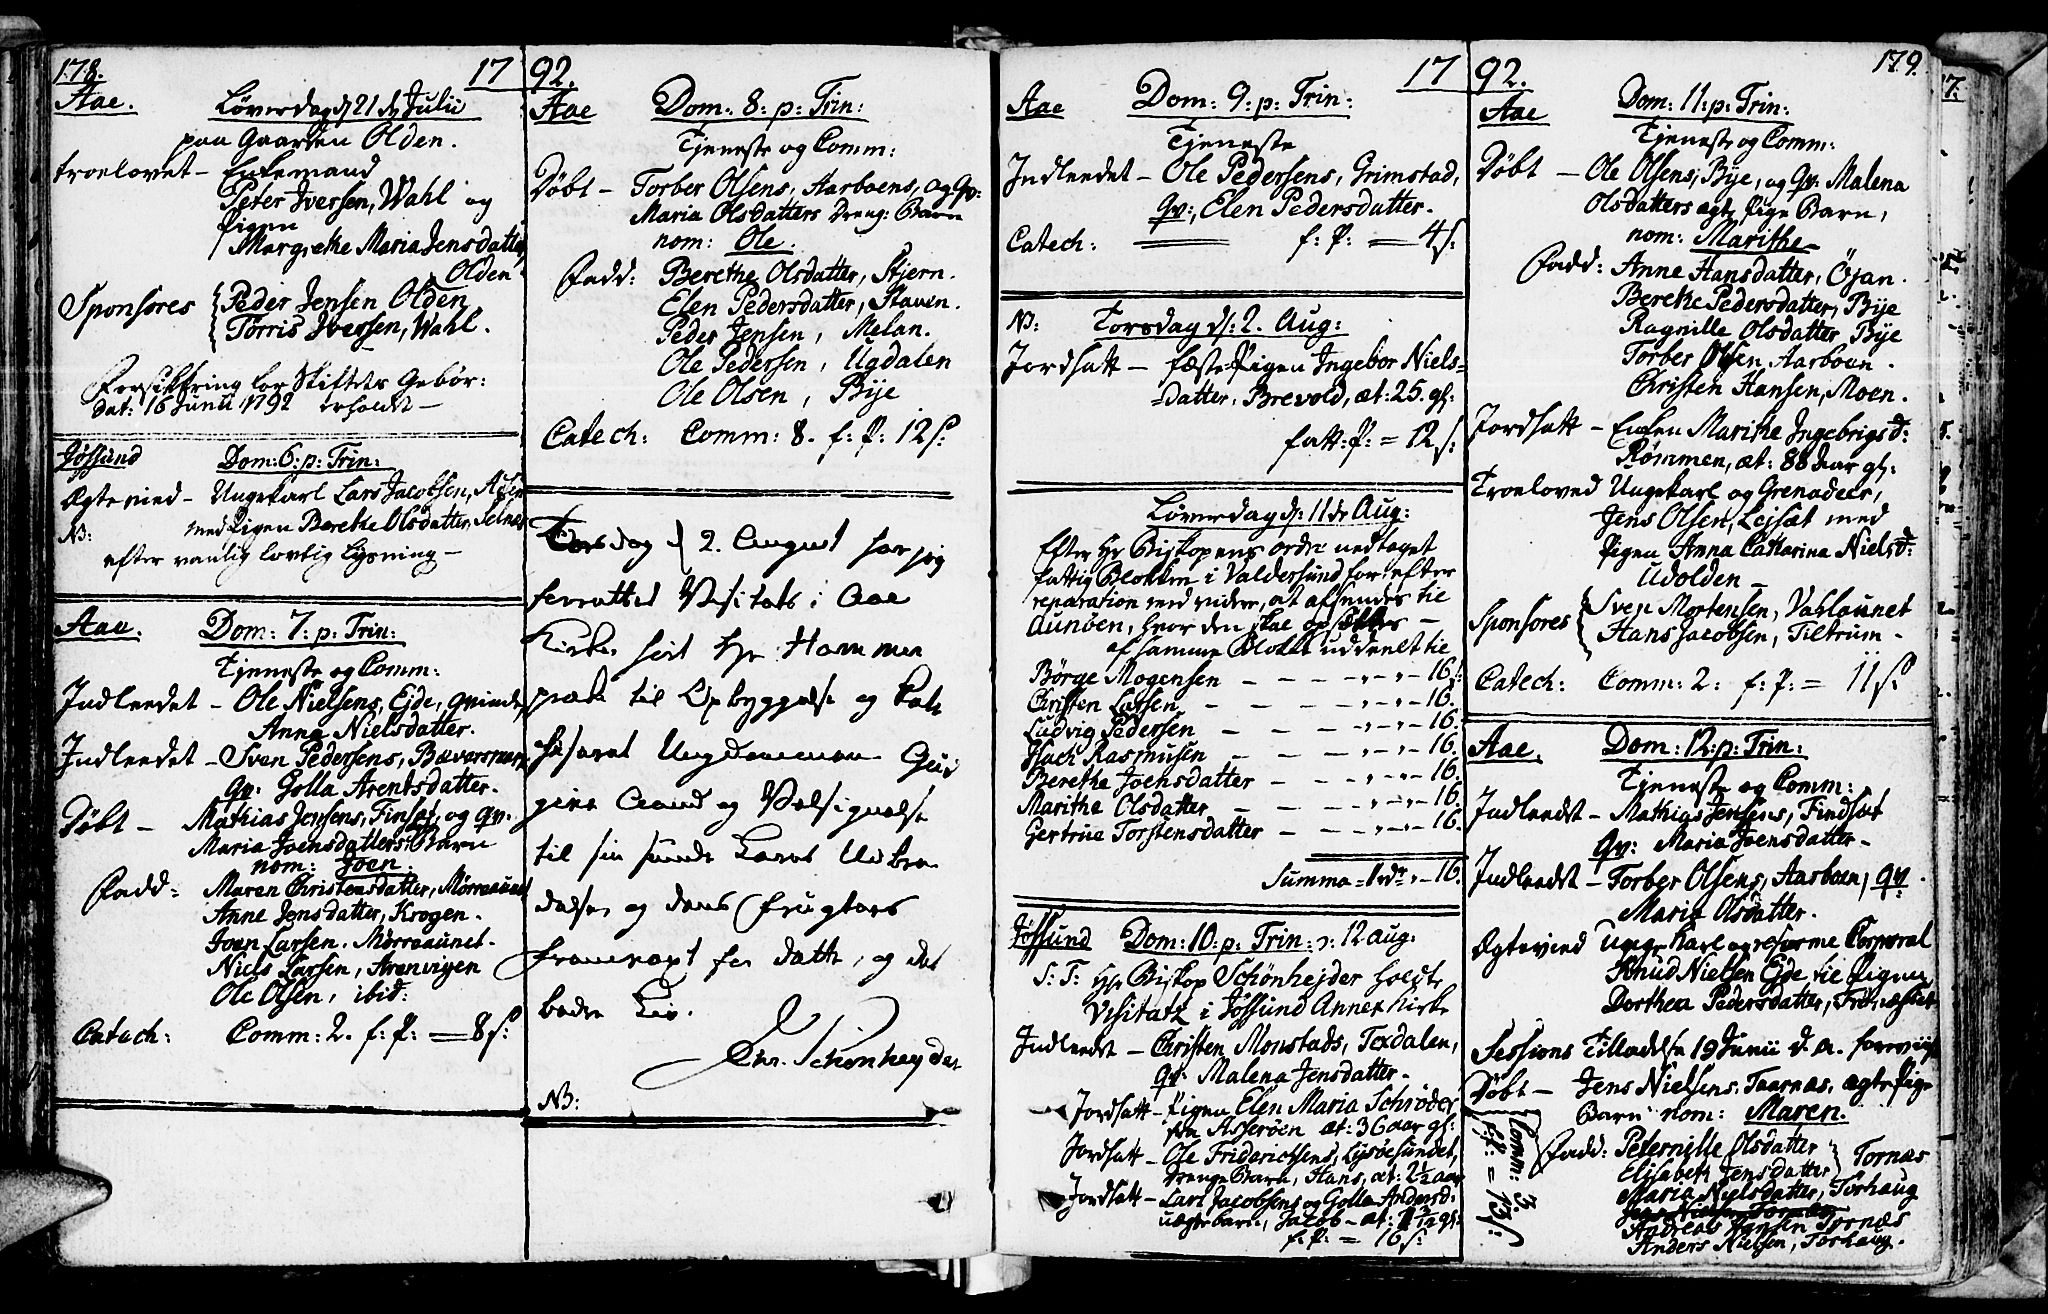 178.
17
Aae. Løverdag d 21 de Julii
paa Gaarden Olden.
troelovet – Enkemand
Peter Iversen, Wahl og
Pigen
Margrethe Maria Jensdatter,
Olden
Sponsores Peder Jensen Olden
Torris Iversen, Wahl.
Forsikkring for Skiftets Gebør:
dat: 16 Junii 1792 erholdt –
Jøssund Dom: 6: p: Trin:
Ægtevied – Ungekarl Lars Jacobsen,
N: med Pigen Berethe Olsdatter, Selnes
efter vanlig lovlig Lysning –
Aae. Dom: 7: p: Trin:
Tjeneste og Comm:
Indleedet – Ole Nielsens, Ejde, Qvinde,
Anna Nielsdatter.
Indleedet – Sven Pedersens, Bæversmark
Qv: Golla Arentsdatter.
Døbt – Mathias Jensens, Finsæt, og Qv.
Maria Joensdatters Barn
nom: Joen.
Fadd: Maren Christensdatter, Mørreaunet
Anne Jensdatter, Krogen.
Joen Larsen. Mørreaunet.
Niels Larsen, Arenvigen
Ole Olsen, ibid:
Catech: Comm: 2. f: P: = 8 s:
92.
Aae Dom: 8: p: Trin:
Tjeneste og Comm:
Døbt – Torber Olsens, Aarboens, og Qv:
Maria Olsdatters Dreng: Barn
nom: Ole.
Fadd: Berethe Olsdatter, Stjern.
Elen Pedersdatter, Staven.
Peder Jensen, Melan.
Ole Pedersen, Ugdalen
Ole Olsen, Bye
Catech: Comm: 8. f: P: 12 s:
Torsdag d 2. August har jeg
forrettet Visitats i Aae
Kirke hvor Hr Hammer
præde til Opbyggelse og Cate
chiseret Ungdommen Gud
give Aand og Velsignelse
til sin sunde Læres Udbre
delse, og dens Frugters
Fremvæxt for dette, og det
bedre Liv.
Chr. Schönheyder
N:
17
Aae Dom: 9: p: Trin:
Tjeneste
Indleedet – Ole Pedersens, Grimstad,
Qv:, Elen Pedersdatter.
Catech: f: P: = 4 s:
N: Torsdag d: 2. Aug:
Jordsatt – fæste Pigen Ingebor Niels=
=datter, Brevold, æt: 25. gl:
fatt: P: = 12 s:
Løverdag d: 11 de Aug:
Efter Hr Biskopens ordre nedtaget
fattig Blokken i Valdersund for efter
reparation med videre, at afsendes til
Aunden, hvor den skal opsættes –
af samme Blokk uddeelt til
Børge Mogensen – – – „ – „ – 16 s:
Christen Larsen – – – „ – „ – 16.
Ludvig Pedersen – – – „ – „ – 16.
Hack Rasmusen – – – „ – „ – 16.
Berethe Joensdatter – – – „ – „ – 16.
Marithe Olsdatter – – – „ – „ – 16.
Gertrue Torstensdatter – – – „ – „ – 16.
Summa = 1 rdr „ – 16.
Jøssund Dom: 10: p: Trin: 12 aug:
S: T: Hr Biskop Schönhejder holdt
Visitatz i Jøssund Annex Kirke
Indleedet – Christen Monstads, Toxdalen,
Qv: Malena Jensdatter –
Jordsatt – Pigen Elen Maria Schrøder
fra Asserøen æt: 36 aar gl:
Jordsatt – Ole Friderichsens, Lysøesundet,
Drenge Barn, Hans, æt: 2½ aar
Jordsatt – Lars Jacobsens og Golla Andersd:
uægte barn, Jacob – æt: gl:
f: P: = 16 s:
92.
179.
Aae Dom: 11: p: Trin:
Tjeneste og Comm:
Døbt – Ole Olsens, Bye, og Qv: Malena
Olsdatters ægte Pige Barn,
nom: Marithe
Fadd: Anne Hansdatter, Öjan.
Berethe Pedersdatter, Bye
Ragnille Olsdatter Bye
Torber Olsen, Aarboen.
Christen Hansen, Moen.
Jordsatt – Enken Marithe Ingebrigsd:
Rømmen, æt: 88 Aar gl:
Troeloved Ungekarl og Grenadeer,
Jens Olsen, Lejsæt med
Pigen Anna Catharina Nielsd:
Udolden –
Sponsores Sven Mortensen, Vahlaunet
Hans Jacobsen, Tiltrum –
Catech: Comm: 2: f: P: = 11 s:
Aae. Dom: 12: p: Trin:
Tjeneste og Comm:
Indleedt – Mathias Jensens, Findsæt
Qv: Maria Joensdatter –
Indleedt – Torber Olsens, Aarboen, Qv.
Maria Olsdatter.
Ægtevied Unge Karl og reforme Corporal
Knud Nielsen Ejde til Pigen
Dorthea Pedersdatter,
Sessions Tilladelse 19 Junii d. a. foreviist
Døbt – Jens Nielsens, Taarnæs, ægte Pige
Barn nom: Maren.
Comm: 3.
f: P: = 13 s:
Fadd: Peternille Olsdatter
Elisabeth Jensdatter Tornæs
Maria Nielsdatter, Torhaug
Andreas Hansen Tornæs
Anders Nielsen, Torhaug.